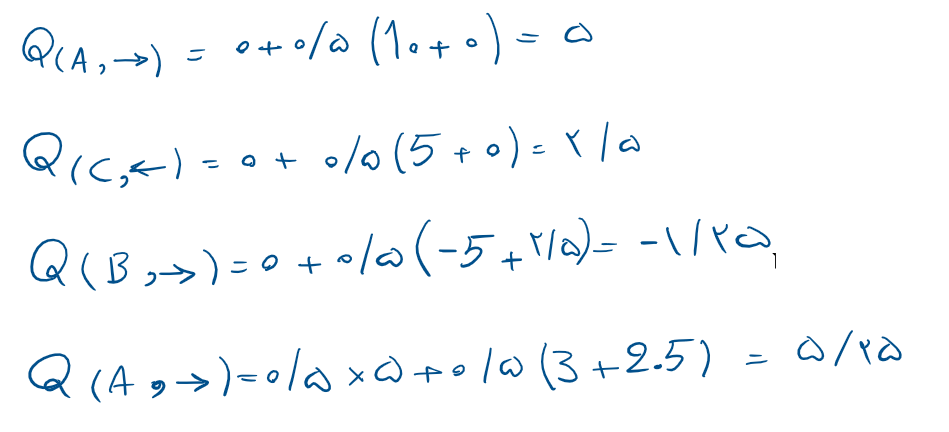 Q(A,→) = ۰+۰/۵ (1۰+۰) = ۵
Q(C,←) = ۰ + ۰/۵(5+۰) = ۲/۵
Q(B,→) = ۰ + ۰/۵(-5+۲/۵) = -۱/۲۵
Q(A,→) = ۰/۵×۵+۰/۵(3+2.5) = ۵/۲۵